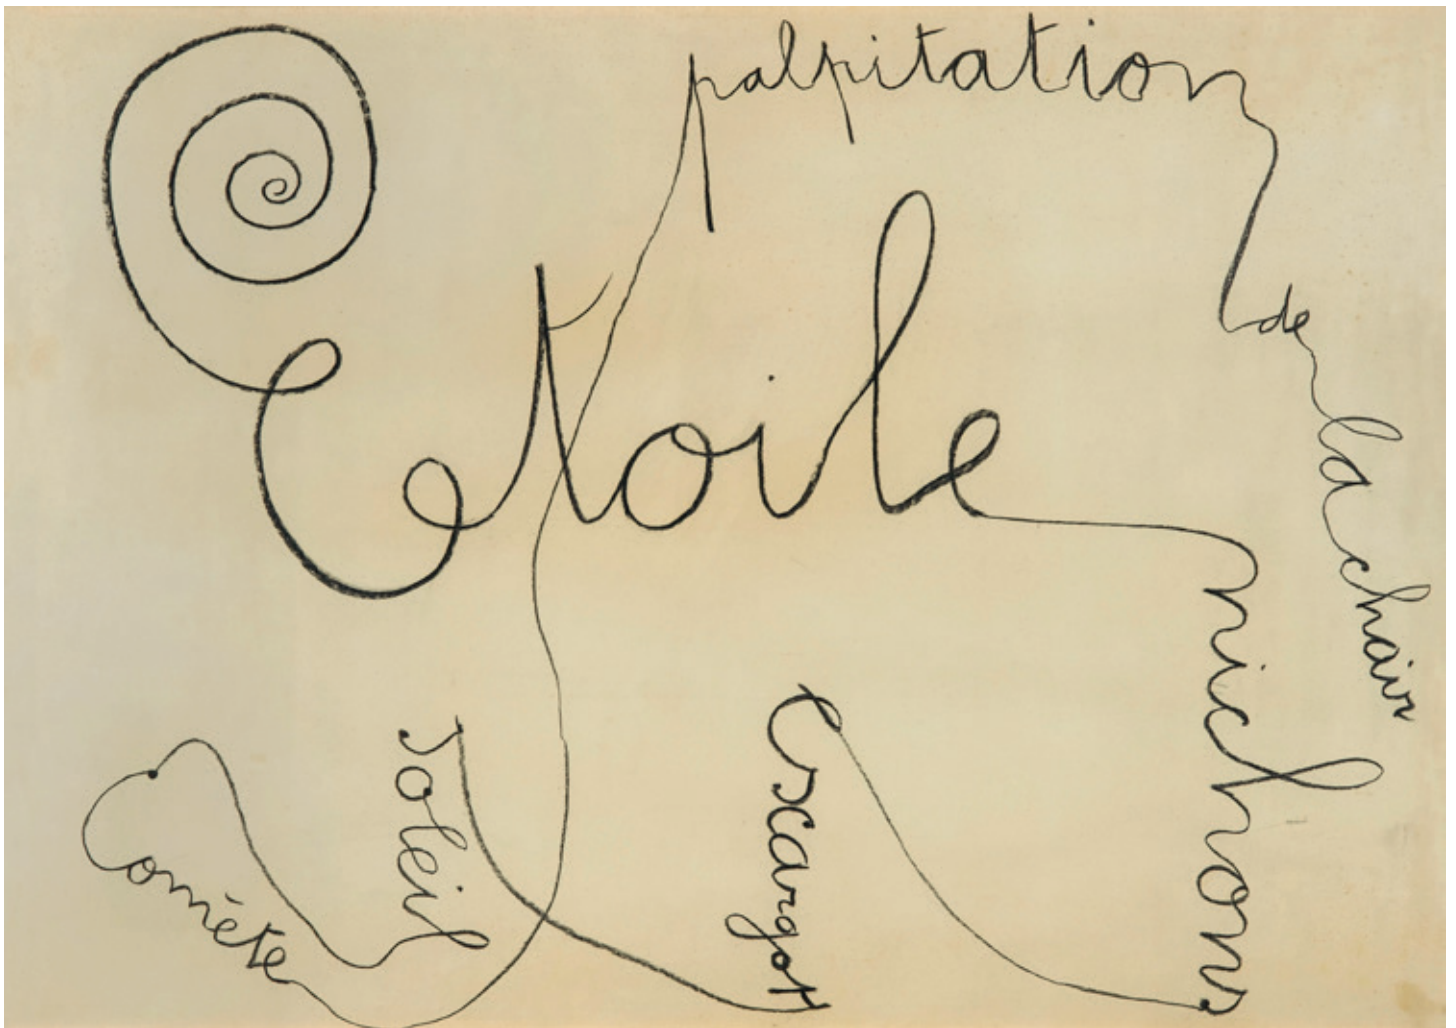 palpitation
de
la chair
Etoile
nichons
escargot
soleil
comète